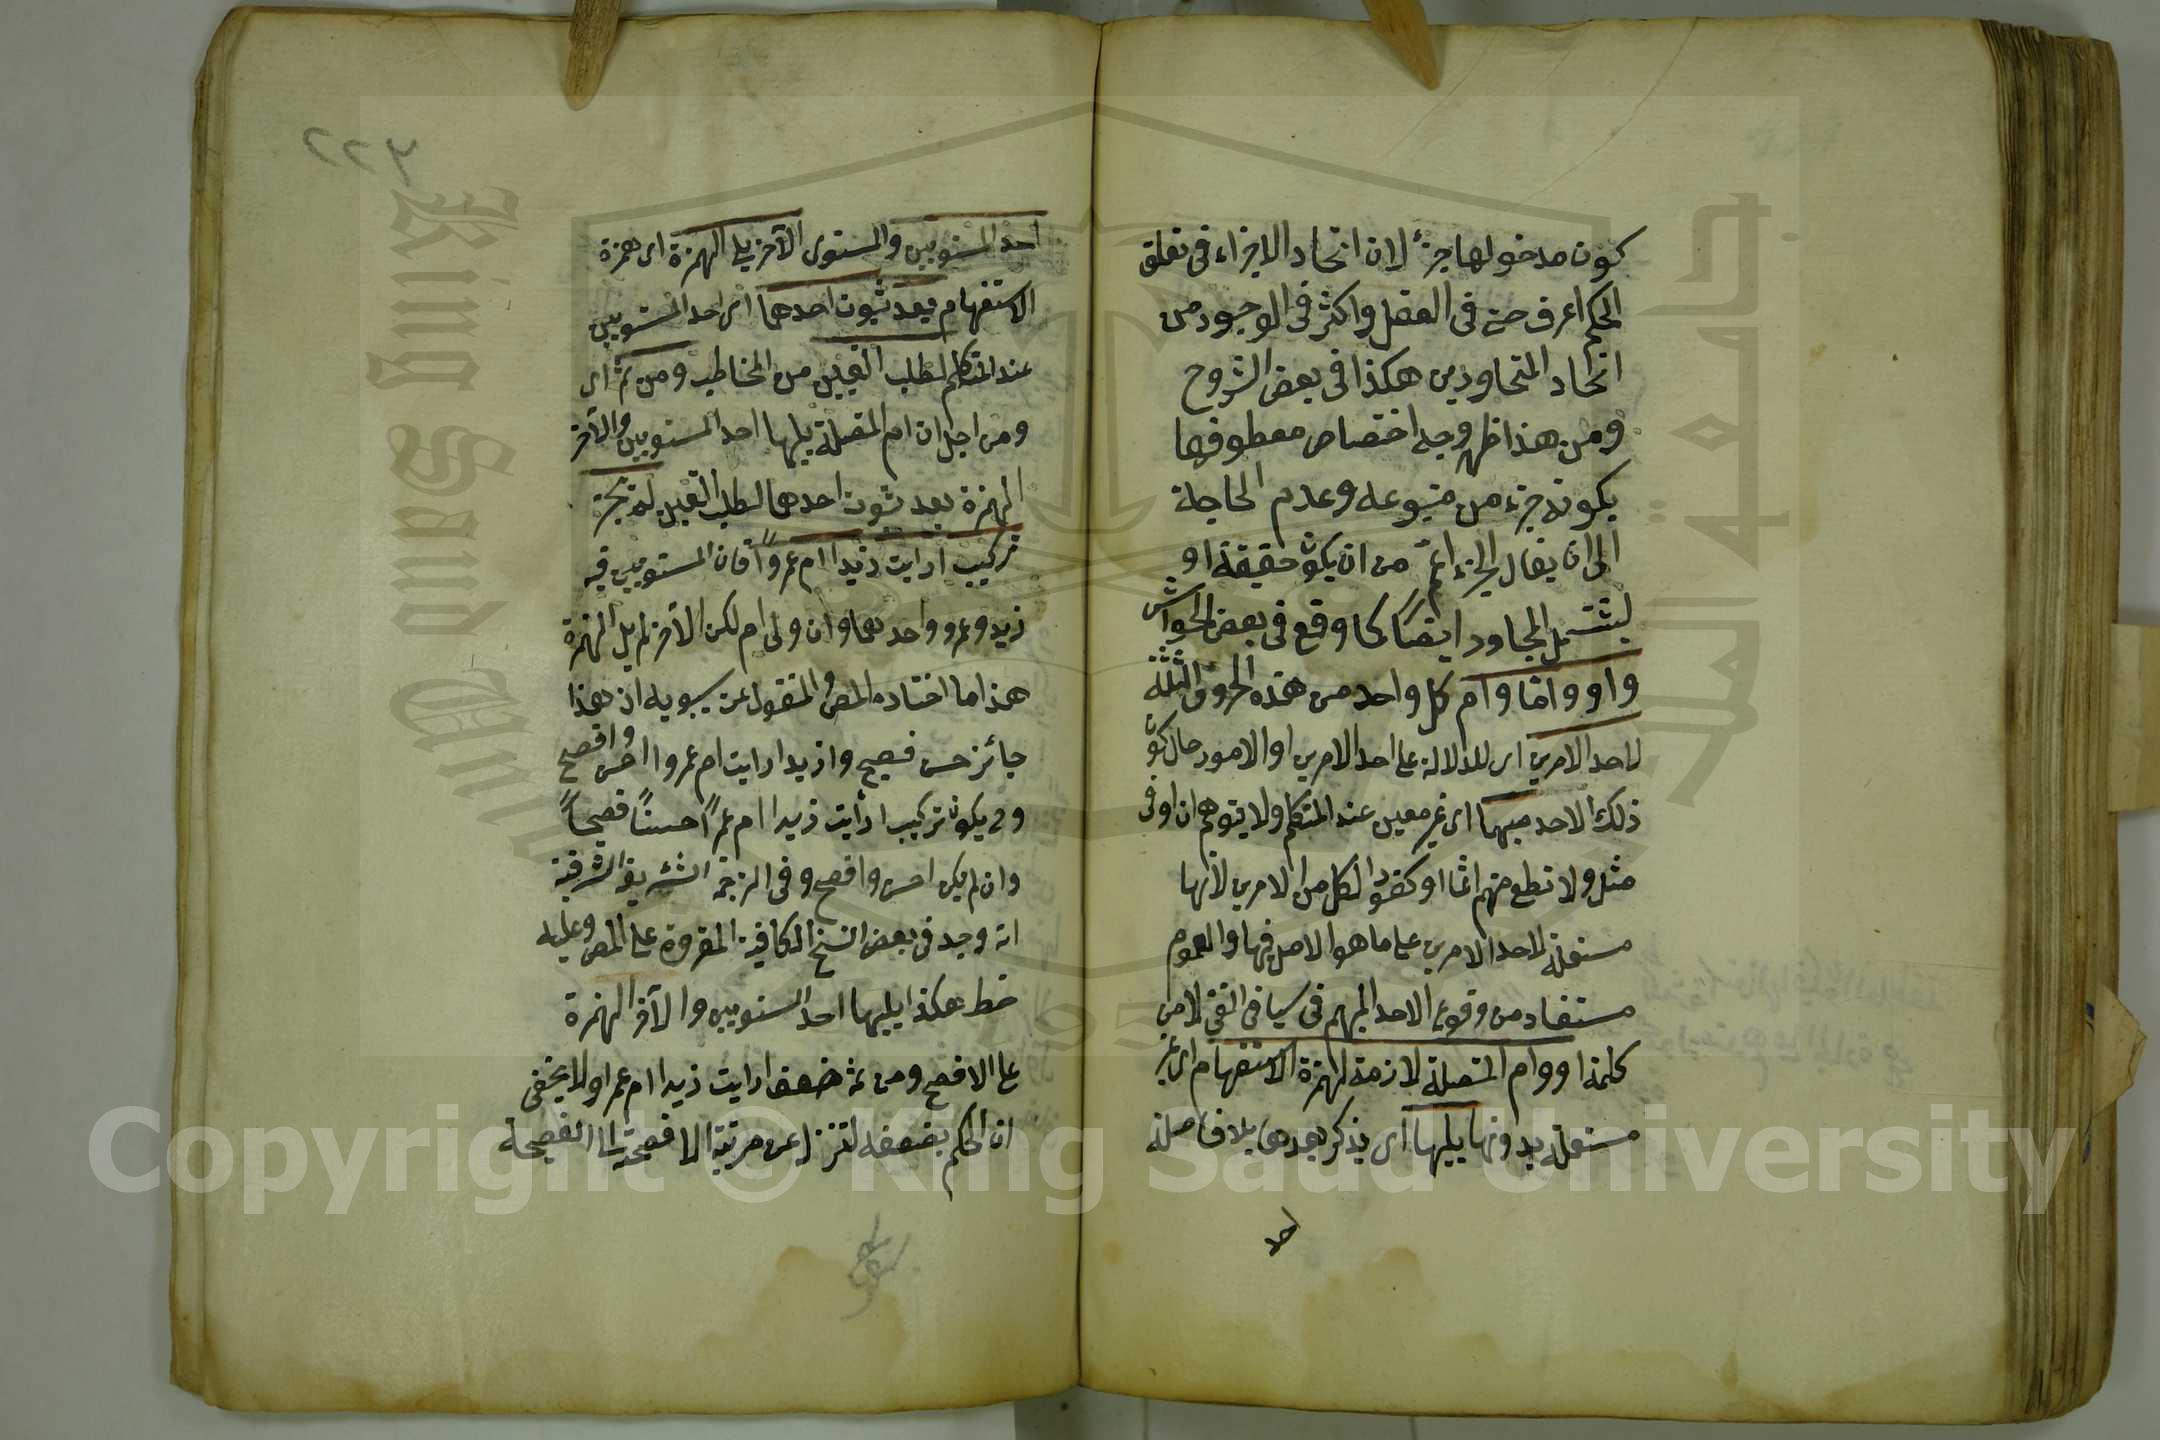 كون مدخولها جزء لان اتحاد الاجزاء فى تعلق
الحكم اعرف حتى فى العقل واكثر فى الوجود من
اتحاد المتجاورين هكذا فى بعض الشروح
ومن هذا ظهر وجه اختصاص معطوفها
بكونه جزء من متبوعه وعدم الحاجة
الى ان يقال الجزء اعم من ان يكون حقيقة او
ليشتمل المجاور ايضا كما وقع فى بعض الحواشى
واو واما وام كل واحد من هذه الحروف الثلثة
لاحد الامرين اى للدلالة على احد الامرين او الامور حال كون
ذلك الاحد مبهما اى غير معين عند المتكلم ولا يتوهم ان او فى
مثل ولا تطع منهم اثما او كفورا لكل من الامرين لانها
مستعملة لاحد الامرين على ما هو الاصل فيها والعموم
مستفاد من وقوع الاحد المبهم فى سياق النفى لا من
كلمة او وام المتصلة لازمة لهمزة الاستفهام اى غير
مستعملة بدونها يليها اى يذكر بعدها بلا فاصلة
احد
٣٢٢
احد المستويين والمستوى الآخر يلى الهمزة اى همزة
الاستفهام بعد ثبوت احدهما اى احد المستويين
عند المتكلم لطلب التعيين من المخاطب ومن ثم اى
ومن اجل ان ام المتصلة يليها احد المستويين والآخر
الهمزة بعد ثبوت احدهما لطلب التعيين لم يجز
تركيب أرايت زيدا ام عمروا فان المستويين فيه
زيد وعمرو واحدهما وان ولى ام لكن الآخر لم يل الهمزة
هذا ما اختاره المص والمنقول عن سيبويه ان هذا
جائز حسن فصيح وازيدا رايت ام عمروا احسن وافصح
وح يكون تركيب ارأيت زيدا ام عمرا حسنا فصيحا
وان لم يكن احسن وافصح وفى الترجمة الشريفة الشرفية
انه وجد فى بعض النسخ الكافية المقروة على المص وعليه
خط هكذا يليها احد المستويين والآخر الهمزة
على الافصح ومن ثم ضعف ارايت زيدا ام عمرا ولا يخفى
ان الحكم بضعفه لتنزل عن مرتبة الافصحية الى الفصيحة
King Saud University
جامعة الملك سعود
1957
Copyright © King Saud University